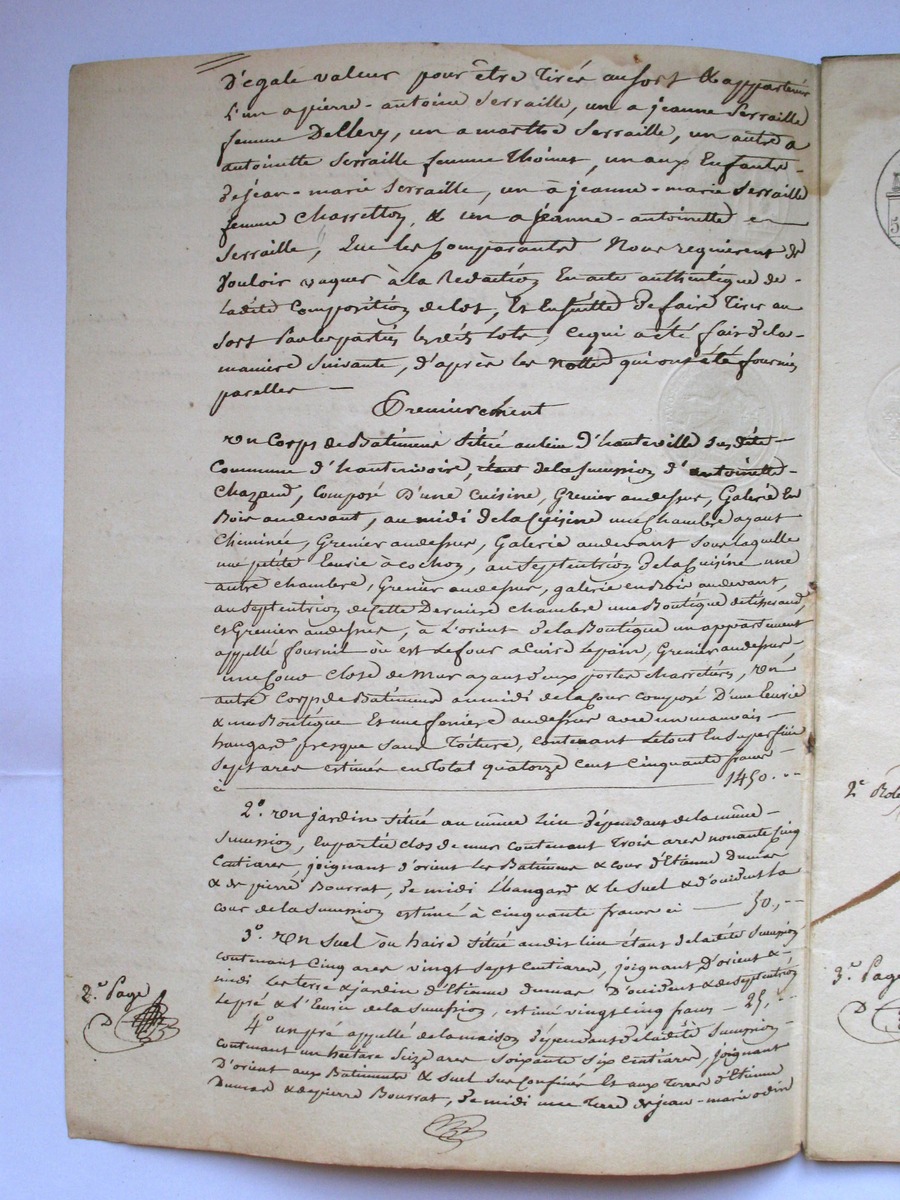 D'égale valeur pour être Tirés au sort & appartenir
L'un a pierre-antoine Serraille, un a jeanne Serraille
femme Dellery, un a marthe Serraille, un autre a
antoinette Serraille femme Thoinet, un aux Enfants-
De jean-marie Serraille, un à jeanne-marie Serraille
femme Charretton, & un a jeanne-antoinette
Serraille, Que les Comparants Nous requièrent de
Vouloir vaquer à la Redaction En acte authentique de-
Ladite Composition de lots, Et Ensuitte De faire Tirer au
Sort Par les parties lesdits Lots, Ce qui a été fait De la-
maniere Suivante, d'après les Notte qui ont été fournies
par elles —
Premierement
un Corps de Batiment Situé au lieu d'hauteville Susdite-
Commune d'hauterivoire, étant de la Sucession d'antoinette-
Chazaud, Composé D'une Cuisine, Grenier au dessus, Galerie En
Bois au devant, au midi de la Cuisine une Chambre ayant
Cheminée, Grenier au dessus, Galerie au devant Sous laquelle
une petite Eurie à cochon, au Septentrion De la Cuisine une
autre chambre, Grenier au dessus, galerie en Bois au devant,
au Septentrion de Cette Derniere chambre une Boutique de tisserand,
et Grenier au dessus, à L'orient De la Boutique un appartement
appellé fournil ou est Le four a Cuire le pain, Grenier au dessus,
une Cour Close de Mur ayant deux portes Charretières, un
autre Corps de Batiment au midi de la Cour Composé D'une Eurie
& une Boutique Et une feniere au dessus avec un mauvais-
hangard presque Sans Toiture, Contenant Le tout En Superficie
Sept ares estimés en Total quatorze Cent Cinquante francs-
ci — 1450. --
2°. un jardin Situé au même Lieu Dépendant de la même-
Sucession, En partie clos de murs Contenant Trois ares nonante cinq
Centiares, joignant d'orient Les Batiments & cour d'Etienne Dumas
& de pierre Bourrat, De midi L'hangard & le Suel & d'ouident la
Cour de la Sucession estimé à cinquante francs ci — 50,--
3°. un Suel ou haire Situé au dit lieu étant de la dite Sucession
Contenant Cinq ares vingt Sept Centiares, joignant D'orient &-
midi Les terre & jardin d'Etienne Dumas D'ouident & de Septentrion
Le pré & l'Eurie de la Sucession, estimé vingt Cinq francs — 25,--
4° un pré appellé de la maison Dépendant de la dite Sucession-
Contenant un hectare Seize ares Soixante Six Centiares, joignant
D'orient aux Batiments & Suel Sus Confinés Et aux Terres d'Etienne
Dumas & de pierre Bourrat, De midi une Terre de jean-marie odin
2.e Page
D
2.e Role
3.e Page
D
5